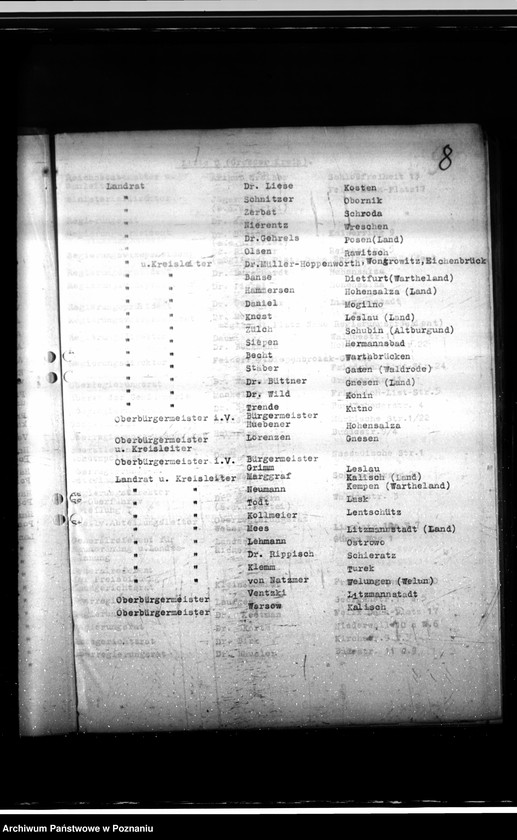 8
Landrat Dr. Liese Kosten
" Schnitzer Obornik
" Zerbst Schroda
" Nierentz Wreschen
" Dr.Gehrels Posen(Land)
" Olsen Rawitsch
" u.Kreisleiter Dr.Müller-Hoppenworth,Wongrowitz,Eichenbrück
" " Banse Dietfurt(Wartheland)
" " Hammersen Hohensalza (Land)
" " Daniel Mogilno
" " Knost Leslau (Land)
" " Zülch Schubin (Altburgund)
" " Siepen Hermannsbad
" " Becht Wartbrücken
" " Staber (Waldrode)
" " Dr. Büttner Gnesen (Land)
" " Dr. Wild Konin
" " Trende Kutno
Oberbürgermeister i.V. Bürgermeister
Huebener Hohensalza
Oberbürgermeister Lorenzen Gnesen
u. Kreisleiter
Oberbürgermeister i.V. Bürgermeister
Grimm Leslau
Landrat u. Kreisleiter Marggraf Kalisch (Land)
" " Neumann Kempen (Wartheland)
" " Todt Lask
" " Kollmeier Lentschütz
" " Mees Litzmannstadt (Land)
" " Lehmann Ostrowo
" " Dr. Rippisch Schieratz
" " Klemm Turek
" " von Natzmer Welungen (Welun)
Oberbürgermeister Ventzki Litzmannstadt
Oberbürgermeister Warsow Kalisch
Archiwum Państwowe w Poznaniu